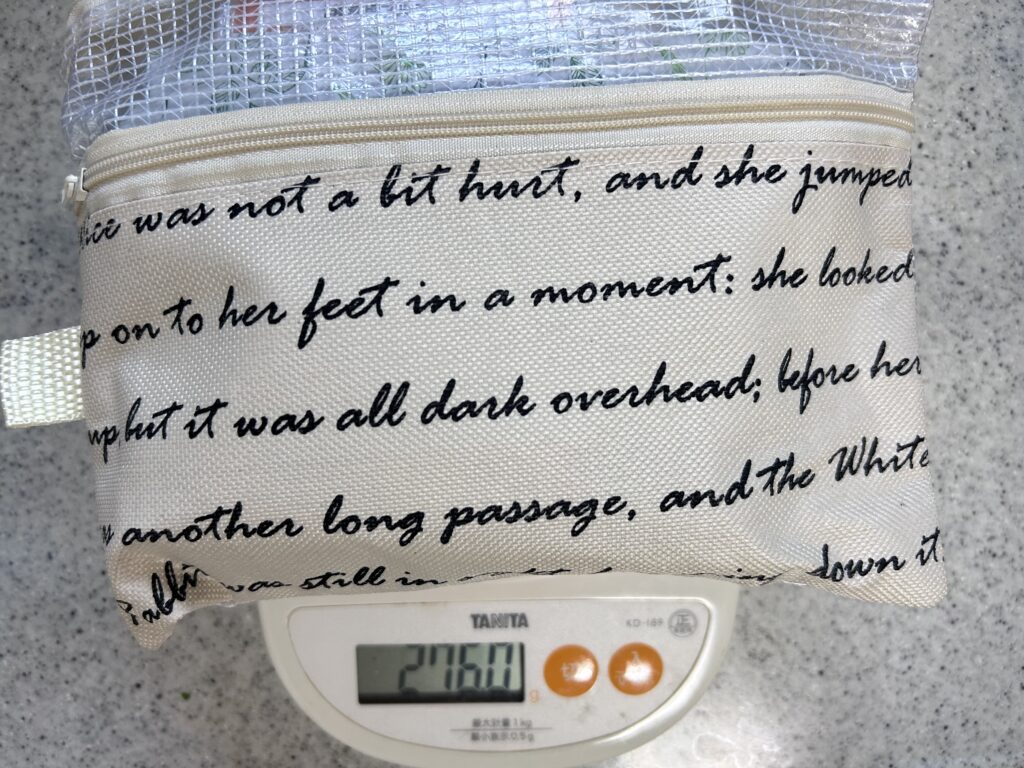 ice was not a bit hurt, and she jumped
p on to her feet in a moment: she looked
up, but it was all dark overhead; before her
another long passage, and the White
Rabbit was still in down it.
TANITA
KD-189 正
276.0 g 切 入
最大計量 1kg
最小表示 0.5g